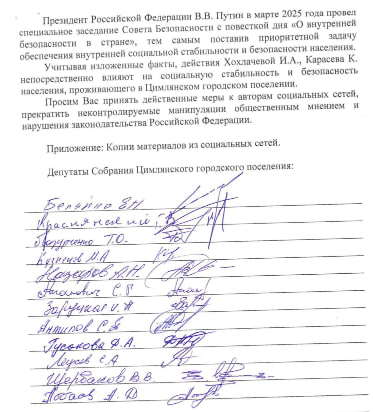 Президент Российской Федерации В.В. Путин в марте 2025 года провел
специальное заседание Совета Безопасности с повесткой дня «О внутренней
безопасности в стране», тем самым поставив приоритетной задачу
обеспечения внутренней социальной стабильности и безопасности населения.
Учитывая изложенные факты, действия Хохлачевой И.А., Карасева К.
непосредственно влияют на социальную стабильность и безопасность
населения, проживающего в Цимлянском городском поселении.
Просим Вас принять действенные меры к авторам социальных сетей,
прекратить неконтролируемые манипуляции общественным мнением и
нарушения законодательства Российской Федерации.
Приложение: Копии материалов из социальных сетей.
Депутаты Собрания Цимлянского городского поселения:
Т.О.
Назаров А.Н.
С.Г.
Заруцкая
Антипов С.
Гусакова Д.А.
С.А.
Щербаков В.В